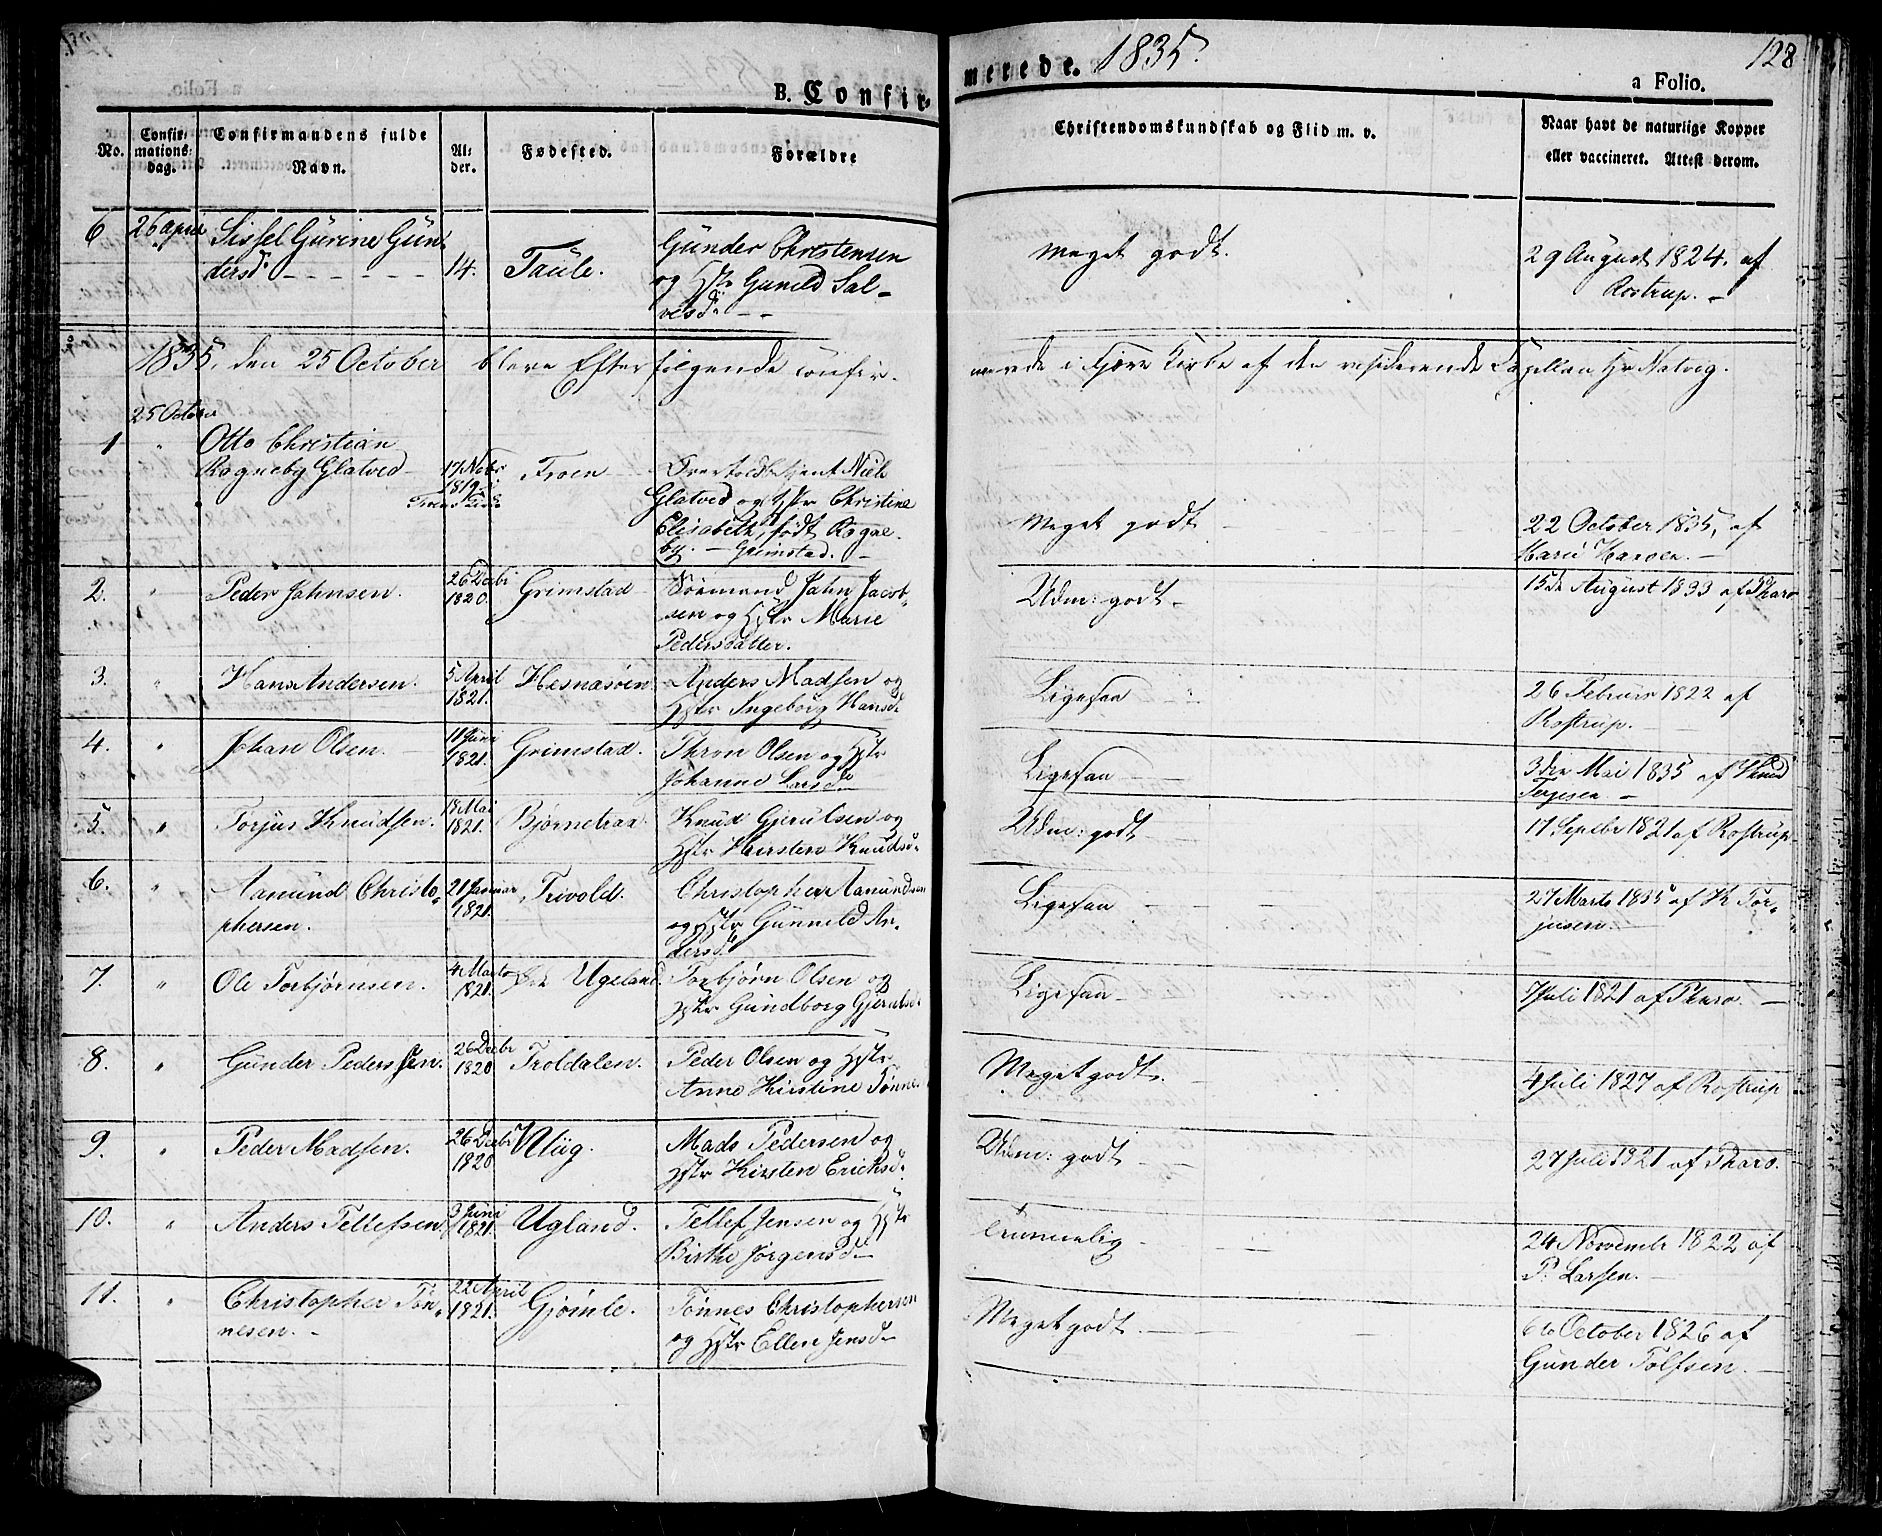 B. Confir-
merede. 1835.
128
a Folio.
No.
Confir-
mations-
dag.
Confirmandens fulde
Navn.
Al-
der.
Fødested.
Forældre
Christendomskundskab og Flid m. v.
Naar havt de naturlige Kopper
eller vaccineret. Attest derom.
6 26 April Sissel Gurine Gun
dersd. 14. Taule.
Gunder Christensen
og Hstr Gunild Sal-
vesd.
Meget godt.
29 August 1824. af
Rostrup.
1835, den 25 October bleve Efterfølgende Confir-
merede i Fjære Kirke af den residerende Capellan Hr Natvig.
25 October
1 " Otto Christian
Rogneby Glatved
17 Nobr
Froen
Niels
Glatved og Hstr Christine
Elisabeth, født Rogne-
by. Grimstad.
Meget godt
22 October 1835, af
Marie Hansen.
2. " Peder Jahnsen.
26 Decbr
1820.
Grimstad
Sømand Jahn Jacob-
sen og Hstr Marie
Pedersdatter.
Udm: godt
15de August 1833 af Tharo
3. " Hans Andersen.
5 April
1821.
Hesnæsøen
Anders Madsen og
Hstr Ingeborg Hansd.
Ligesaa
26 Februar 1822 af
Rostrup.
4. " Johan Olsen.
11 Juni
1821.
Grimstad.
Thron Olsen og Hstr
Johanne Larsd.
Ligesaa
3die Mai 1835 af Knud
Terjesen
5. " Torjus Knudsen.
18 Mai
1821.
Bjørnetraa.
Knud Gjerulsen og
Hstr Kirsten Knudsd.
Udm: godt
17 Sepebr 1821 af Rostrup
6. " Aamund Christo-
phersen.
21 Januar
1821.
Trivold.
Christopher Aamundsen
og Hstr Gunnild An-
dersd.
Ligesaa
27 Marts 1835 af K Tor-
jusen.
7. " Ole Torbjørnsen.
4 Marts
1821.
Ugeland.
Torbjørn Olsen og
Hstr Gundborg Gjerulsd.
Ligesaa
7 Juli 1821 af Tharo.
8. " Gunder Pedersen.
26 Decbr
1820
Troldalen.
Peder Olsen og Hstr
Anne Kirstine Tønnes
Meget godt.
4 Juli 1827 af Rostrup
9. " Peder Madsen.
26 Decbr
1820
Mads Pedersen og
Hstr Kirsten Erichsd.
Udm: godt
27 Juli 1821 af Tharo.
10. " Anders Tellefsen
3 Juni
1821.
Ugland.
Tellef Jensen og Hstr
Birthe Jørgensd
Temmelig
24 November 1822 af
P. Larsen.
11. " Christopher Tøn-
nesen.
22 April
1821.
Gjømle.
Tønnes Christophersen
og Hstr Ellen Jensd
Meget godt.
6te October 1826 af
Gunder Tolfsen.